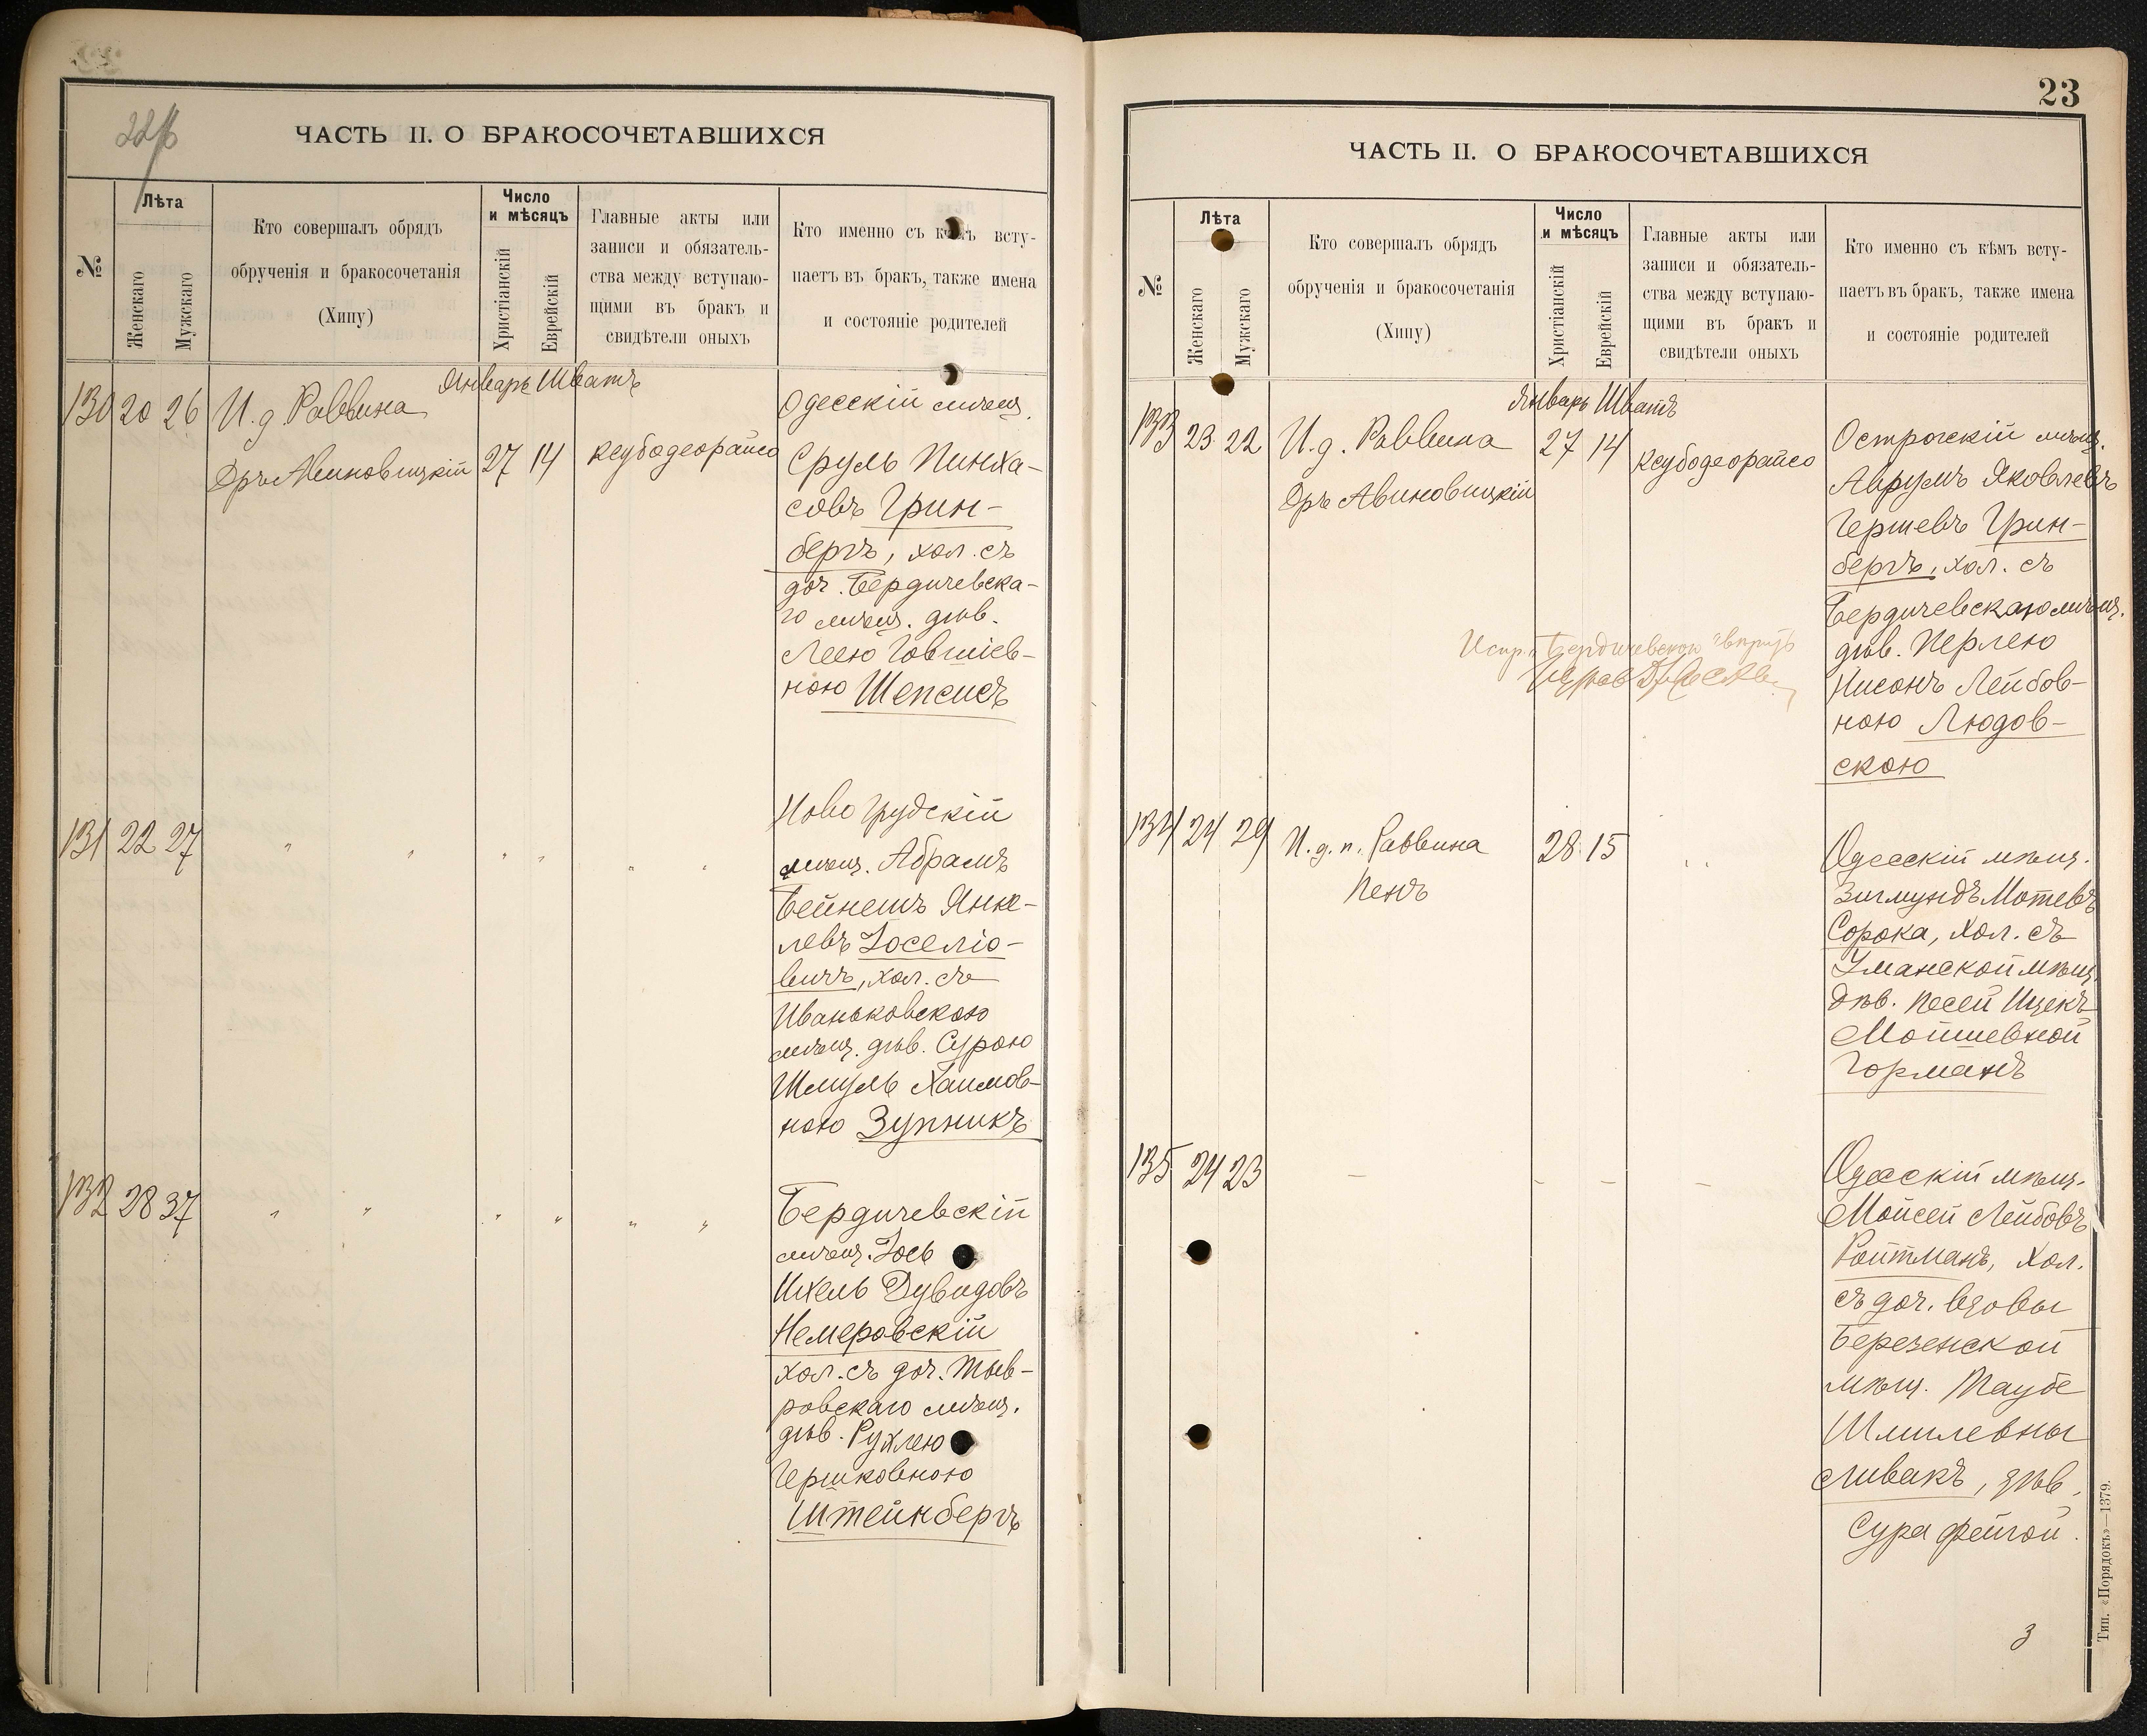 22/б
ЧАСТЬ II. О БРАКОСОЧЕТАВШИХСЯ
№
Лѣта
Женскаго
Мужскаго
Кто совершалъ обрядъ
обрученія и бракосочетанія
(Хипу)
Число
и мѣсяцъ
Христіанскій
Еврейскій
Главные акты или
записи и обязатель-
ства между вступаю-
щими въ бракъ и
свидѣтели оныхъ
Кто именно съ кѣмъ всту-
паетъ въ бракъ, также имена
и состояніе родителей
Январь Шватъ
130 20 26 И. д. Раввина
Дръ Авиновицкій 27 14 ксубодеорайсо
Одесскій мѣщ.
Сруль Пинха-
совъ Грин-
бергъ, хол. съ
доч. Бердичевска-
го мѣщ. дѣв.
Леею Говшіев-
ною Шепсисъ
131 22 27 " " " " " "
Новогрудскій
мѣщ. Абрамъ
Бейнешъ Янке-
левъ Іоселіо-
вичъ, хол. съ
Иваньковскою
мѣщ. дѣв. Сурою
Шмуль Хаимов-
ною Зупникъ
132 28 37 " " " " " "
Бердичевскій
мѣщ. Іось
Ихель Дувидовъ
Немеровскій
хол. съ доч. Тыв-
ровскаго мѣщ.
дѣв. Рухлею
Гершковною
Штейнбергъ
23
ЧАСТЬ II. О БРАКОСОЧЕТАВШИХСЯ
№
Лѣта
Женскаго
Мужскаго
Кто совершалъ обрядъ
обрученія и бракосочетанія
(Хипу)
Число
и мѣсяцъ
Христіанскій
Еврейскій
Главные акты или
записи и обязатель-
ства между вступаю-
щими въ бракъ и
свидѣтели оныхъ
Кто именно съ кѣмъ всту-
паетъ въ бракъ, также имена
и состояніе родителей
Январь Шватъ
133 23 22 И. д. Раввина 27 14 ксубодеорайсо
Дръ Авиновицкій
Острогскій мѣщ.
Аврумъ Яковлевъ
Гершевъ Грин-
бергъ, хол. съ
Бердичевскою мѣщ.
дѣв. Перлею
Нисонъ Лейбов-
ною Людов-
скою
Испр. "Бердичевскою"
134 24 29 И. д. п. Раввина 28 15 " "
Пенъ
Одесскій мѣщ.
Зигмундъ Мотевъ
Сорока, хол. съ
Уманской мѣщ.
дѣв. Песей Ицекъ
Мошиевной
Горманъ
135 24 23 — — — —
Одесскій мѣщ.
Мойсей Лейбовъ
Ройтманъ, хол.
съ доч. вдовы
Березенской
мѣщ. Таубе
Шмилевны
Спивакъ, дѣв.
Сура Фейгой.
3
Тип. «Порядокъ»—1379.